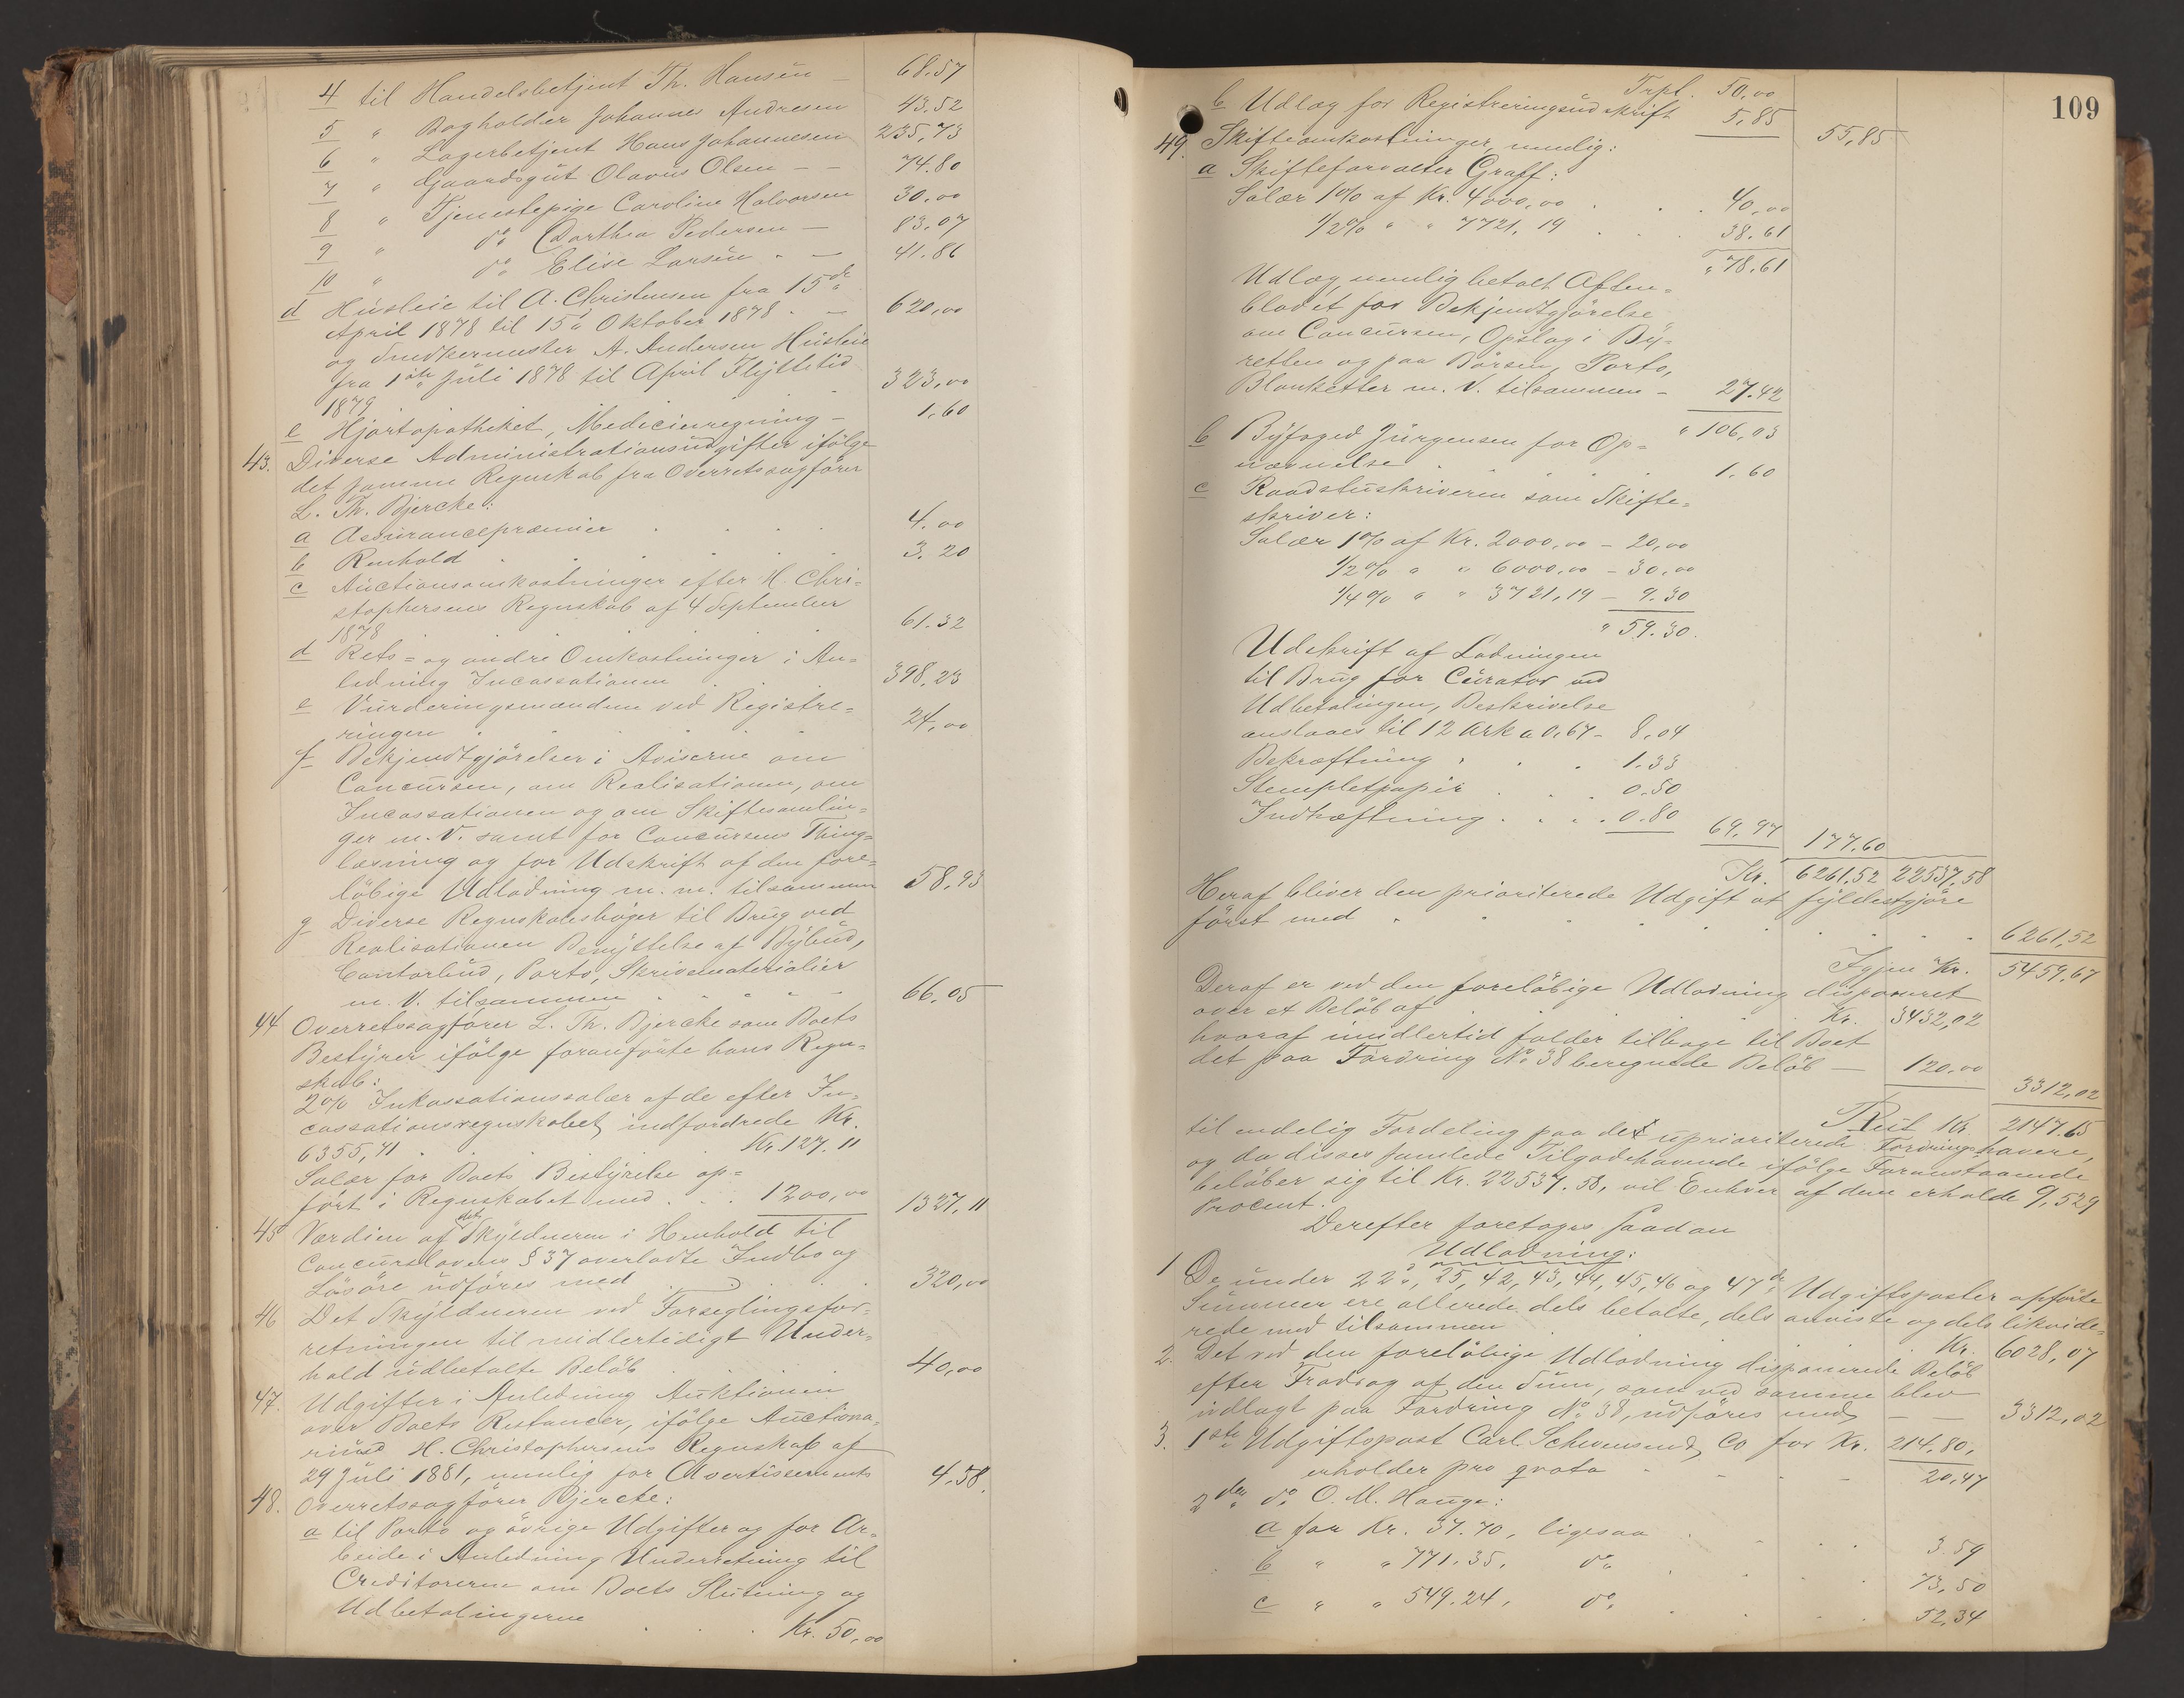 4 til Handelsbetjent Th. Hansen – 68.57
5 " Bogholder Johannes Andresen 43.52
6 " Lagerbetjent Hans Johannesen 235,73
7 " Gaardsgut Olavus Olsen – – 74.80
8 " Tjenestepige Caroline Halvorsen 30,00
9 " do Dorthea Pedersen – 83.07
10 " do Elise Larsen " – 41.86
d Husleie til A. Christensen fra 15de
April 1878 til 15d Oktober 1878 . – 620,00
og Snedkermester A. Andersen Husleie
fra 1ste Juli 1878 til April Flyttetid
1879 . . . 323,00
e Hjortapotheket, Medicinregning – 1.60
43. Diverse Administrationsudgifter ifølge
det samme Regnskab fra Overretssagfører
L. Th. Bjercke:
a Assurancepræmier . . . . 4.00
b Renhold . . . . . 3.20
c Auctionsomkostninger efter H. Chri=
stophersens Regnskab af 4 September
1878 . . . 61.32
d Rets= og andre Omkostninger i An=
ledning Incassationen . . 398,23
e Vurderingsmændene ved Registre=
ringen . . . . 24,00
f Bekjendtgjørelser i Aviserne om
Concursen, om Realisationen, om
Incassationen og om Skiftesamlin=
ger m. V. samt for Concursens Thing=
læsning og for Udskrift af den fore=
løbige Udlodning m. m. tilsammen 58,93
g Diverse Regnskabsbøger til Brug ved
Realisationen Benyttelse af Bybud,
Contorbud, Porto, Skrivematerialier
m. V. tilsammen . . . – – 66.05
44 Overretssagfører L. Th. Bjercke som Boets
Bestyrer ifølge foranførte hans Regn=
skab:
2% Inkassationssalær af de efter In=
cassationsregnskabet indfordrede Kr.
6355,41 . . . Kr. 127.11
Salær for Boets Bestyrelse op=
ført i Regnskabet med . . . 1200,00 1327.11
45 Værdien af det Skyldneren i Henhold til
Concurslovens § 37 overladte Indbo og
Løsøre udføres med . . . 320,00
46 Det Skyldneren ved Forseglingsfor=
retningen til midlertidigt Under=
hold udbetalte Beløb . . 40,00
47. Udgifter i Anledning Auktionen
over Boets Restancer, ifølge Auctiona=
rius H. Christophersens Regnskab af
29 Juli 1881, nemlig for Avertissements 4.58.
48. Overretssagfører Bjercke:
a til Porto og øvrige Udgifter og for Ar=
beide i Anledning Underretning til
Creditorerne om Boets Slutning og
Udbetalingerne . . . Kr. 50,00
109
Trpt. 50,00
b Udlæg for Registreringsudskrift 5,85 55,85
49. Skifteomkostninger, nemlig:
a Skifteforvalter Graff:
Salær 1% af Kr. 4000,00 . . . 40,00
1/2% " " 7721,19 . . . 38.61
" 78.61
Udlæg, nemlig betalt Aften=
bladet for Bekjendtgjørelse
om Concursen, Opslag i By=
retten og paa Børsen, Porto,
Blanketter m. V. tilsammen – 27.42
" 106,03
b Byfoged Jürgensen for Op=
nævnelse . . . . 1.60
c Raadstueskriveren som Skifte=
skriver:
Salær 1% af Kr. 2000,00 – 20,00
1/2% " " 6000,00 – 30,00
1/4% " " 3721,19 – 9.30
" 59.30.
Udskrift af Lodningen
til Brug for Curator ved
Udbetalingen, Beskrivelse
anslaaes til 12 Ark a 0,67 – 8,04
Bekræftning . . . 1.33
Stempletpapir . . . 0.50
Indhæftning . . . . 0.80 69,97 177.60
Kr. 6261,52 22537,58
Heraf bliver den prioriterede Udgift at fyldestgjøre
først med . . . . . . . . 6261,52
Igjen Kr. 5459,67
Deraf er ved den foreløbige Udlodning disponeret
over et Beløb af . . . . . Kr. 3432,02
hvoraf imidlertid falder tilbage til Boet
det paa Fordring No 38 beregnede Beløb — 120.00
3312,02
Rest Kr. 2147.65
til endelig Fordeling paa de uprioriterede Fordringshavere,
og da disses samlede Tilgodehavende ifølge Foranstaaende
beløber sig til Kr. 22537.58, vil Enhver af dem erholde 9,529
Procent.
Derefter foretages saadan
Udlodning:
1 De under 22d, 25, 42, 43, 44, 45, 46 og 47de Udgiftsposter opførte
Summer ere allerede dels betalte, dels anviste og dels likvide=
rede med tilsammen . . . Kr. 6028,07
2. Det ved den foreløbige Udlodning disponerede Beløb
efter Fradrag af den Sum, som ved samme blev
udlagt paa Fordring No 38, udføres med – – 3312,02
3. 1ste Udgiftspost Carl Schwensen & Co for Kr. 214,80,
erholder pro qvota . . – – 20,47
2den do O. M. Hauge:
a for Kr. 37.70, ligesaa . . . 3.59
b " " 771.35, do . . . . 73,50
c " " 549.24, do . . . . 52,34